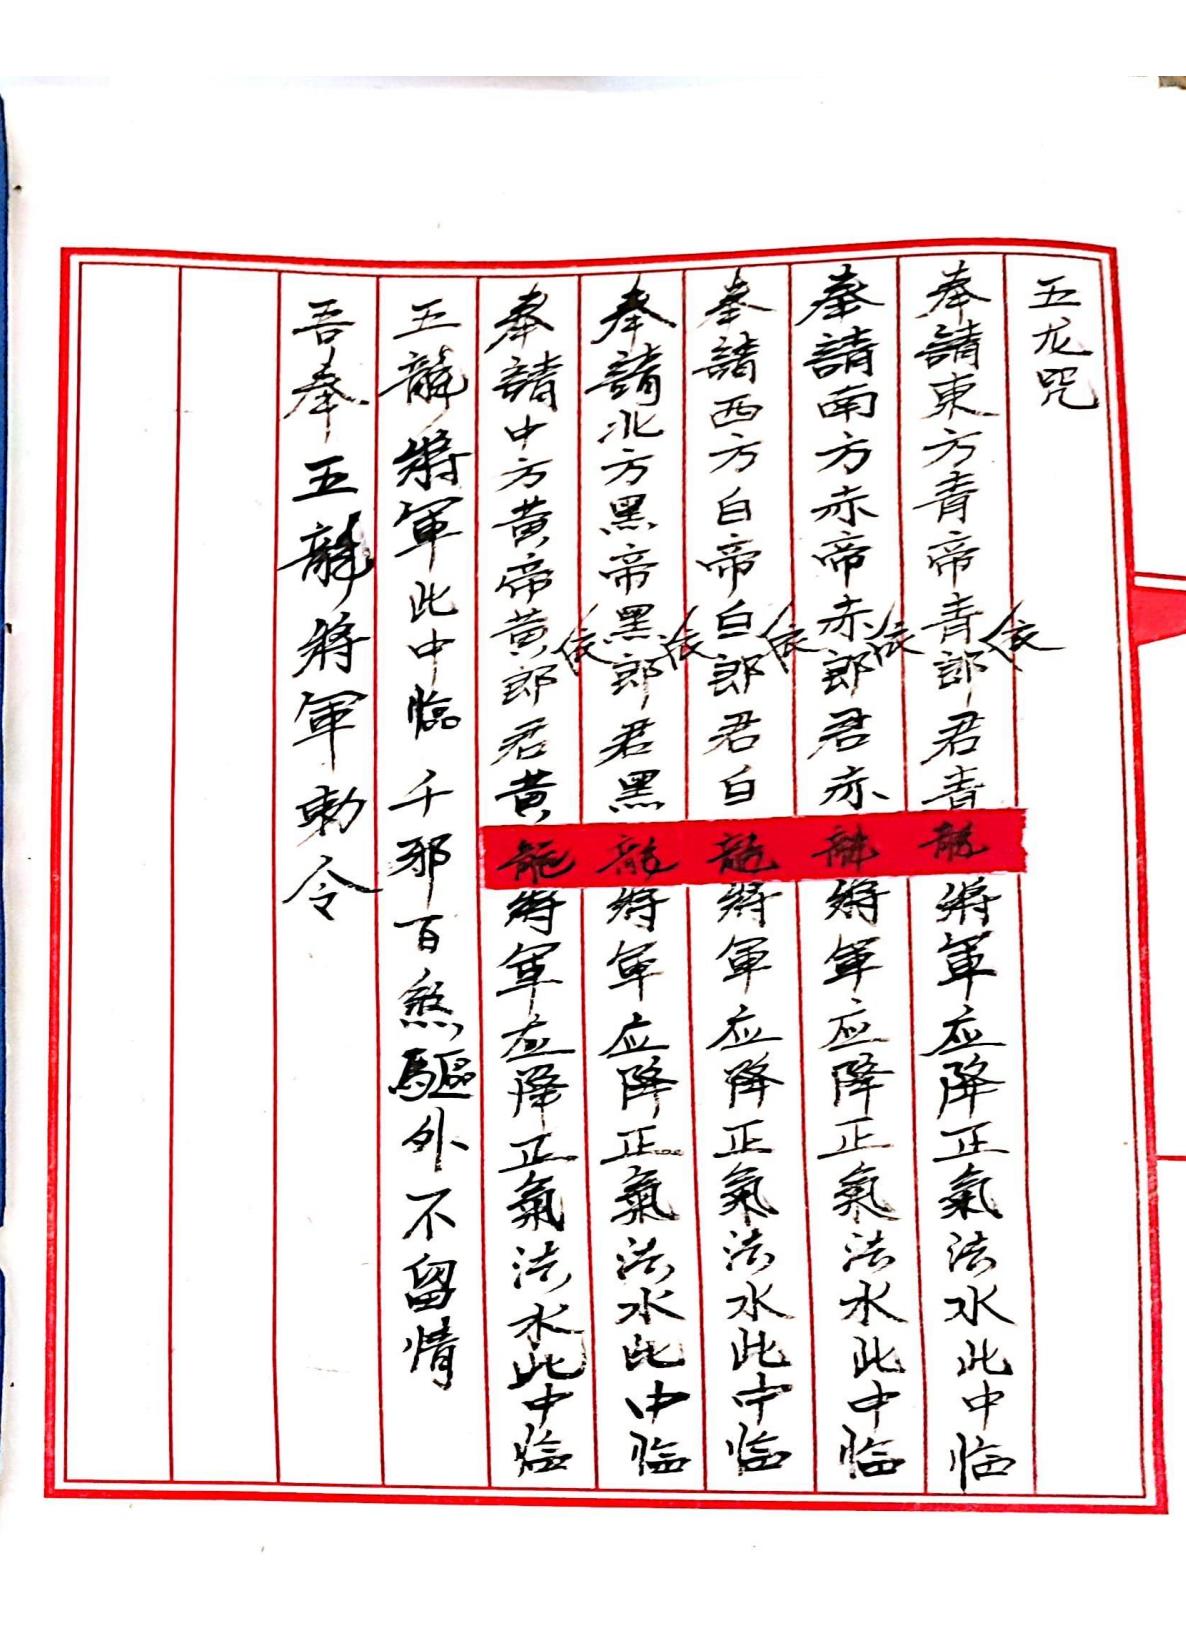 五龙咒
奉請東方青帝青郎君青龍將軍应降正氣法水此中临
依
奉請南方赤帝赤郎君赤龍將軍应降正氣法水此中临
依
奉請西方白帝白郎君白龍將軍应降正氣法水此中临
依
奉請北方黑帝黑郎君黑龍將軍应降正氣法水此中临
依
奉請中方黄帝黄郎君黄龍將軍应降正氣法水此中临
依
五龍將軍此中臨千邪百煞驅外不留情
吾奉五龍將軍勅令